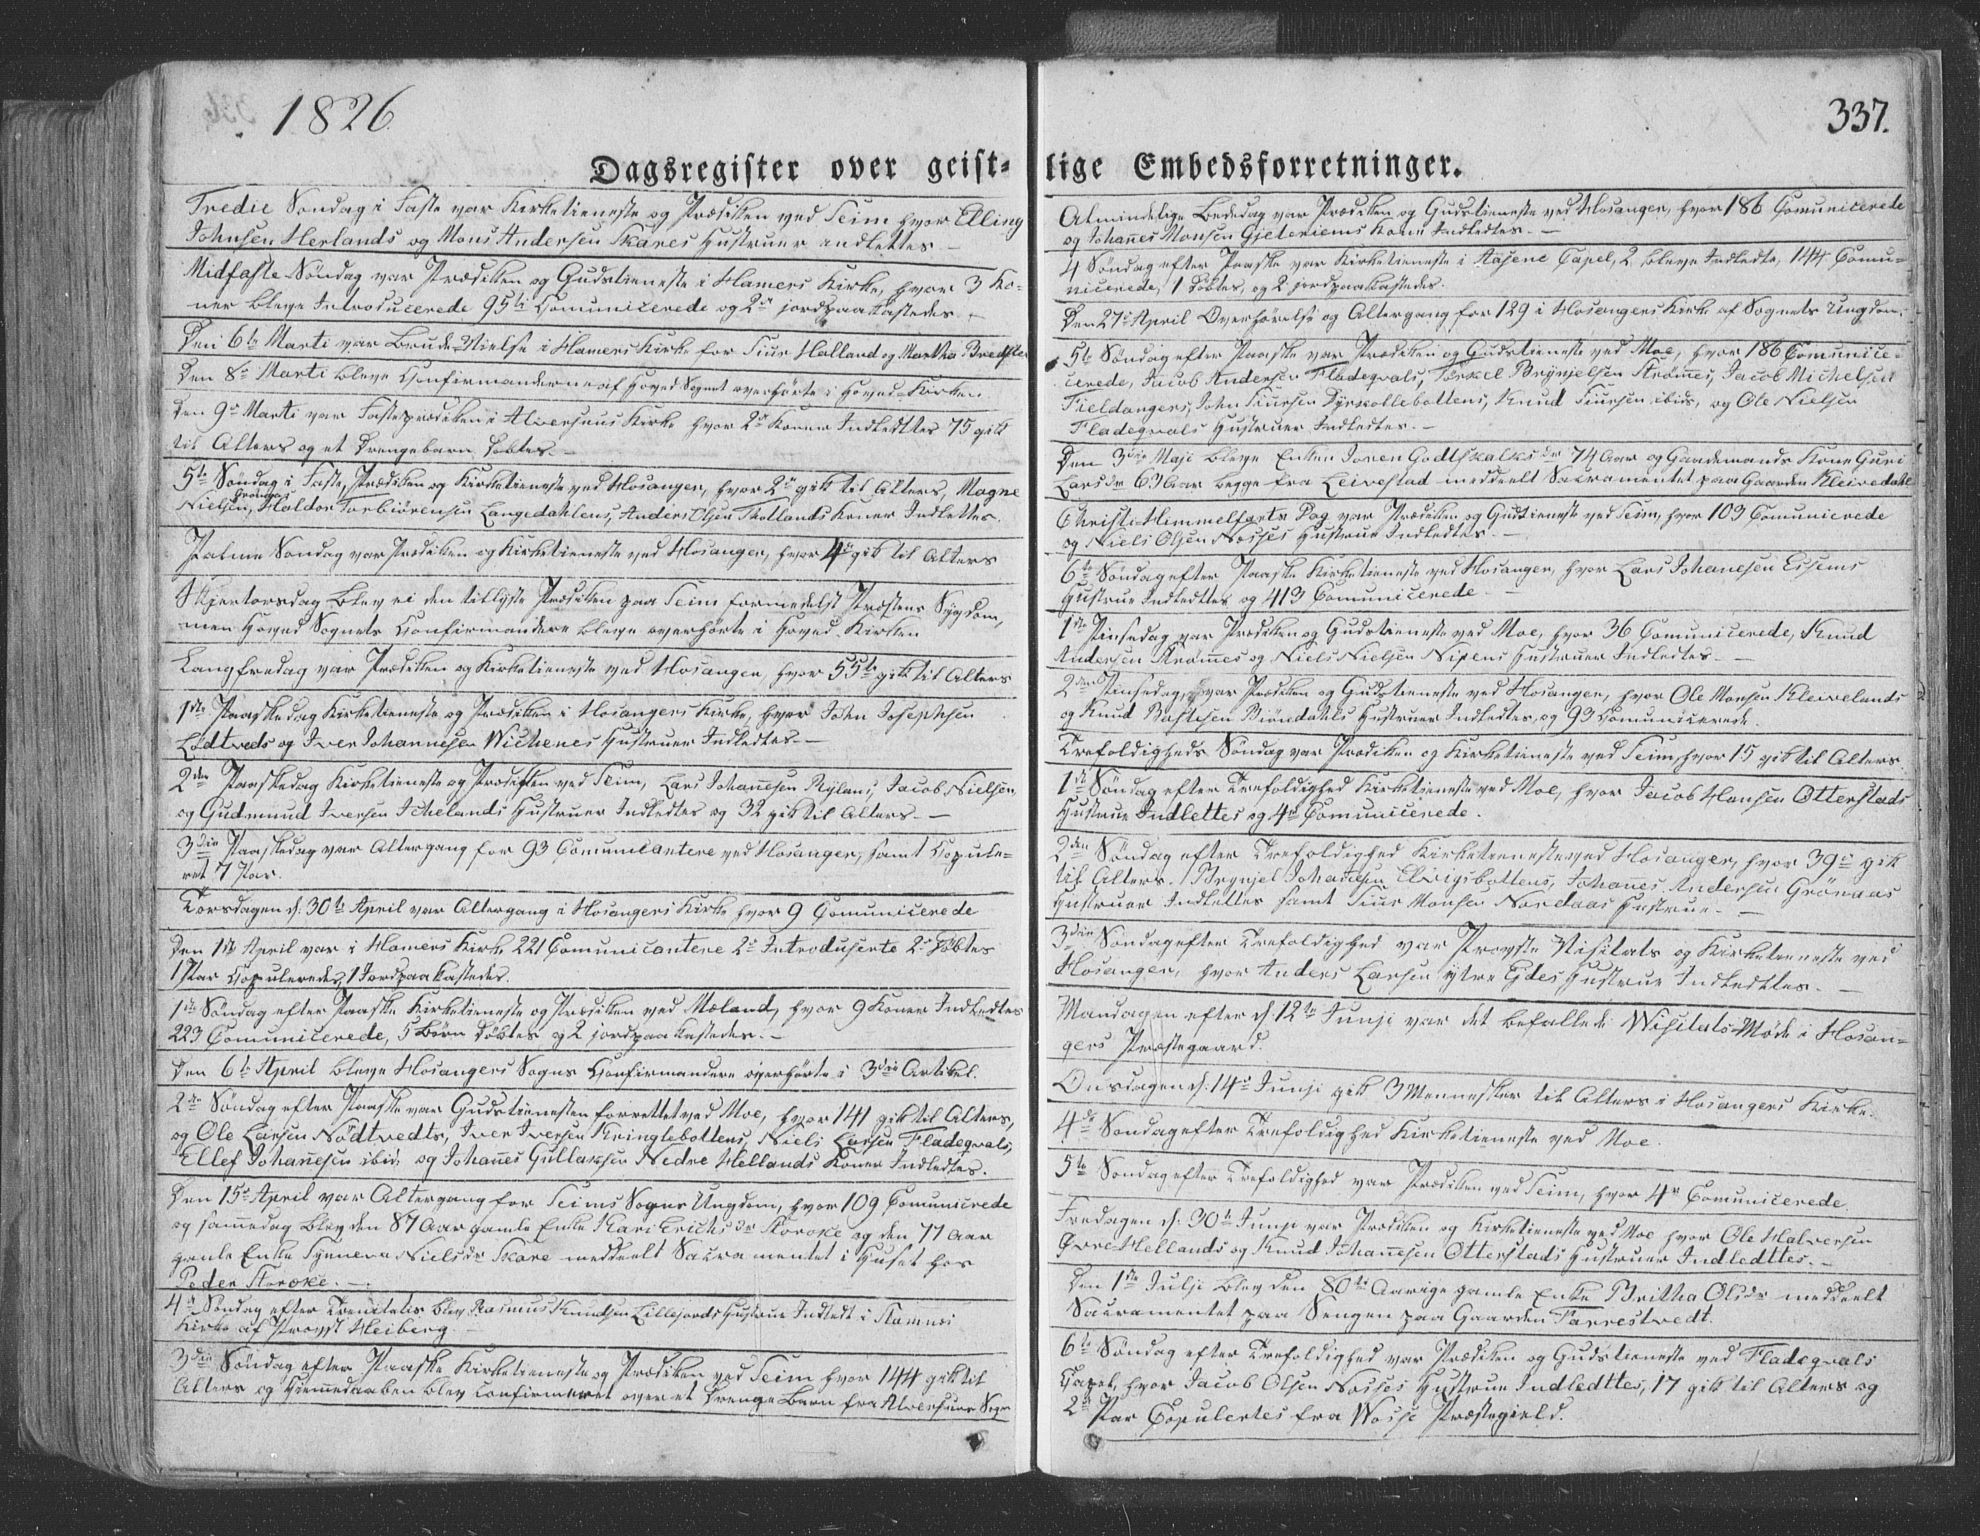 1826.
337.
Dagsregister over geist-
lige Embedsforretninger.
Tredie Søndag i Faste var Kirketieneste og Prædiken ved Seim hvor Elling
Johnsen Herlands og Mons Andersen Skares Hustruer indlettes. —
Midfaste Søndag var Prædiken og Gudstieneste i Hamers Kirke, hvor 3 Ko-
ner bleve Introducerede 95ti Comunicerede og 2de jordpaakastedes. —
Den 6te Marti var Brude-Vielse i Hamers Kirke for Siur Halland og Martha
Den 8de Marti bleve Confirmanderne af Hoved Sognet overhørte i Hoved-Kirken
Den 9de Marti var Fasteprædiken i Alversuns Kirke hvor 2de Koner Indledttes 75 gik
til Alters og et Drengebarn døbtes. —
5te Søndag i Faste, Prædiken og Kirketieneste ved Hosanger, hvor 2de gik til Alters, Magne
Nielsen Haldor Torbiørensen Langedahlens, Anders Olsen Koner Indlettes.
Palme Søndag var Prædiken og Kirketieneste ved Hosanger, hvor 4re gik til Alters
Skjertorsdag blev ei den tillyste Prædiken paa Seim formedelst Præstens Sygdom,
men Hoved Sognets Confirmandere bleve overhørte i Hoved-Kirken
Langfredag var Prædiken og Kirketieneste ved Hosanger, hvor 55te gik til Alters
1ste Paaskedag Kirketieneste og Prædiken i Hosangers Kirke, hvor John Josephsen
Lødtveds og Iver Johannesen Wichenes Hustruer Indledtes —
2den Paaskedag Kirketieneste og Prædiken ved Seim, Lars Johannesen Rylans, Jacob Nielsen,
og Gudmund Iversen Ichelands Hustruer Indledtes og 32 gik til Alters. —
3die Paaskedag var Altergang for 93 Comunicantere ved Hosanger, samt Copule-
ret 7 Par.
Torsdagen d: 30te April var Altergang i Hosangers Kirke hvor 9 Comunicerede
Den 1ste April var i Hamers Kirke 221 Comunicantere 2de Introduserte 2de Døbtes
1 Par Copuleredes, 1 Jordpaakastedes.
1ste Søndag efter Paaske Kirketieneste og Prædiken ved Mæland, hvor 9 Koner Indledtes
223 Comunicerede, 5 Børn Døbtes og 2 jordpaakastedes. —
Den 6te April bleve Hosangers Sogns Confirmandere overhørte i 3die Artikel.
2den Søndag efter Paaske var Gudstienesten forrettet ved Moe, hvor 141 gik til Alters,
og Ole Larsen Nødtvedts, Iver Iversen Kringlebottens, Niels Larsen Fladeqvals,
Ellef Johannesen ibid, og Johannes Gullaksen Nedre Hellands Koner Indledtes.
Den 15de April var Altergang for Seims Sogns Ungdom, hvor 109 Comunicrede
og sammedag blev den 87 Aar gamle Enke Kari Erichsdr Storoke og den 77 Aar
gamle Enke Synneva Nielsdr Skare meddeelt Sacramentet i Huset hos
Peder Storoke. —
4de Søndag efter Trenitatis blev Rasmus Knudsen Lillejords Hustrue Indledt i Hamers
Kirke af Provst Heiberg. —
3die Søndag efter Paaske Kirketieneste og Prædiken ved Seim hvor 144 gik til
Alters og Hiemmedaaben blev confirmeret over et Drenge Barn fra Alversuns Sogn
Almindelige Bededag var Prædiken og Gudstieneste ved Hosanger, hvor 186 Comunicerede
og Johannes Monsen Gjeteriems Kone Indledtes. —
4 Søndag efter Paaske var Kirketieneste i Aasene Capel, 2 bleve Indledte, 144 Comu-
nicerede, 1 døbtes, og 2 jordpaakastedes.
Den 27de April Overhørelse og Altergang for 129 i Hosangers Kirke af Sognets Ungdom.
5te Søndag efter Paaske var Prædiken og Gudstieneste ved Moe, hvor 186 Comunice-
cerede, Jacob Andersen Fladeqvals, Torkel Brynjelsen Strømes, Jacob Michelsen
Tieldangers, John Siursen Dyrkollebottens, Knud Siursen ibids, og Ole Nielsen
Fladeqvals Hustruer Indledtes. —
Den 3die Maji bleve Enken Joren Godtskalksdr 74 Aar og Gaardmands Kone Guri
Larsdr 63 Aar begge fra Leivestad meddeelt Sacramentet paa Gaarden Kleivedahl
Christi Himmelfarts Dag var Prædiken og Gudstieneste ved Seim, hvor 103 Comunicrede
og Niels Olsen Nosses Hustrue Indledtes. —
6te Søndag efter Paaske Kirketieneste ved Hosanger, hvor Lars Johannesen Eisems
Hustrue Indledttes og 413 Comunicerede. —
1ste Pinsedag var Prædiken og Gudstieneste ved Moe, hvor 36 Comunicerede, Knud
Andersen Strømmes og Niels Nielsen Nipens Hustruer Indledtes. —
2den Pinsedag, var Prædiken og Gudstieneste ved Hosanger, hvor Ole Monsen Kleivelands
og Knud Bastesen Biørndahls Hustruer Indledtes, og 93 Comunicerede.
Trefoldigheds Søndag var Prædiken og Kirketieneste ved Seim, hvor 15 gik til Alters.
1ste Søndag efter Trefoldighed Kirketieneste ved Moe, hvor Jacob Hansen Otterstads
Hustrue Indlettes og 4re Comunicerede.
2den Søndag efter Trefoldighed Kirketieneste ved Hosanger, hvor 39 gik
til Alters. Brynjel Johannesen Elvigsbottens, Johannes Andersen Grønaas
Hustruer Indlettes samt Siur Monsen Nordaas Hustrue. —
3die Søndag efter Trefoldighed var Provste Visitats og Kirketieneste ved
Hosanger, hvor Anders Larsen ytre Eides Hustrue Indledttes. —
Mandagen efter d: 12te Junji var det befallede Visitats-Møde i Hosan-
gers Præstegaard.
Onsdagen d: 14de Junji gik 3 Mennesker til Alters i Hosangers Kirke.
4de Søndag efter Trefoldighed Kirketieneste ved Moe
5te Søndag efter Trefoldighed var Prædiken ved Seim, hvor 4re Comunicerede.
Fredagen d: 30te Junji var Prædiken og Kirketieneste ved Moe hvor Ole Halversen
Øvre Hellands og Knud Johannesen Otterstads Hustruer Indledttes. —
Den 1ste Julji blev den 80te Aarige gamle Enke Britha Olsdr meddeelt
Sacramentet paa Sengen paa Gaarden Tarrestvedt.
6te Søndag efter Trefoldighed var Prædiken og Gudstieneste ved Fladeqvals
Capel, hvor Jacob Olsen Nosses Hustrue Indledttes, 17 gik til Alters og
2de Par Copulertes fra Wosse Præstegield.